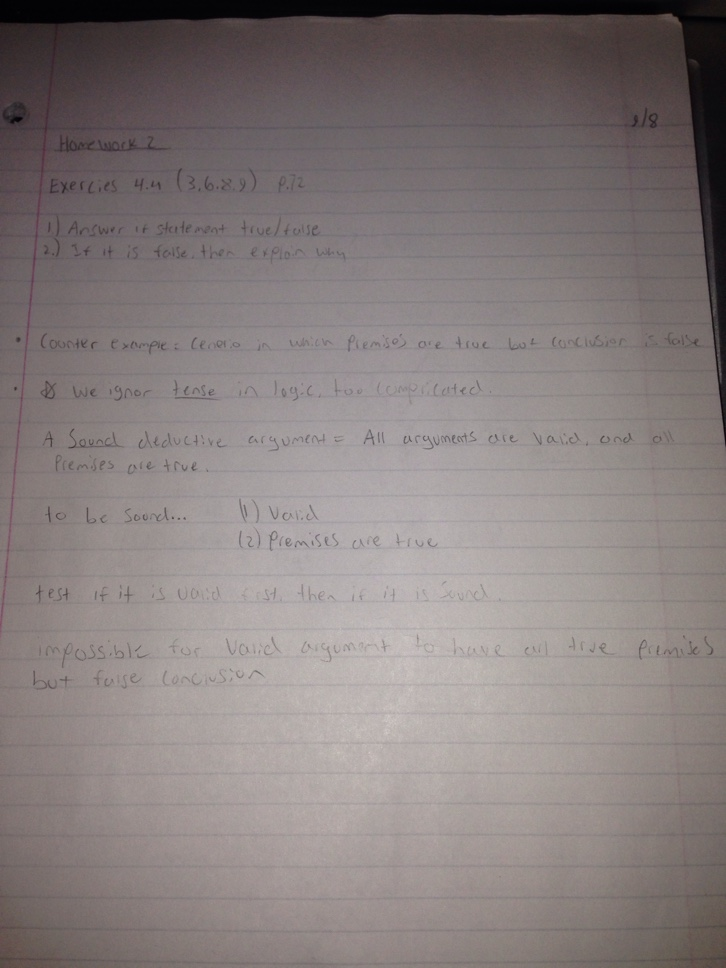 9/8
Homework 2
Exercies 4.4 (3,6,8,9) P.72
1) Answer if statement true/false
2.) If it is false, then explain why
• Counter example = Cenerio in which Premises are true but conclusion is false
• We ignor tense in logic, too complicated.
A Sound deductive argument = All arguments are valid, and all
Premises are true.
to be Sound... (1) Valid
(2) Premises are true
test if it is valid first, then if it is Sound.
impossible for Valid argument to have all true premises
but false conclusion